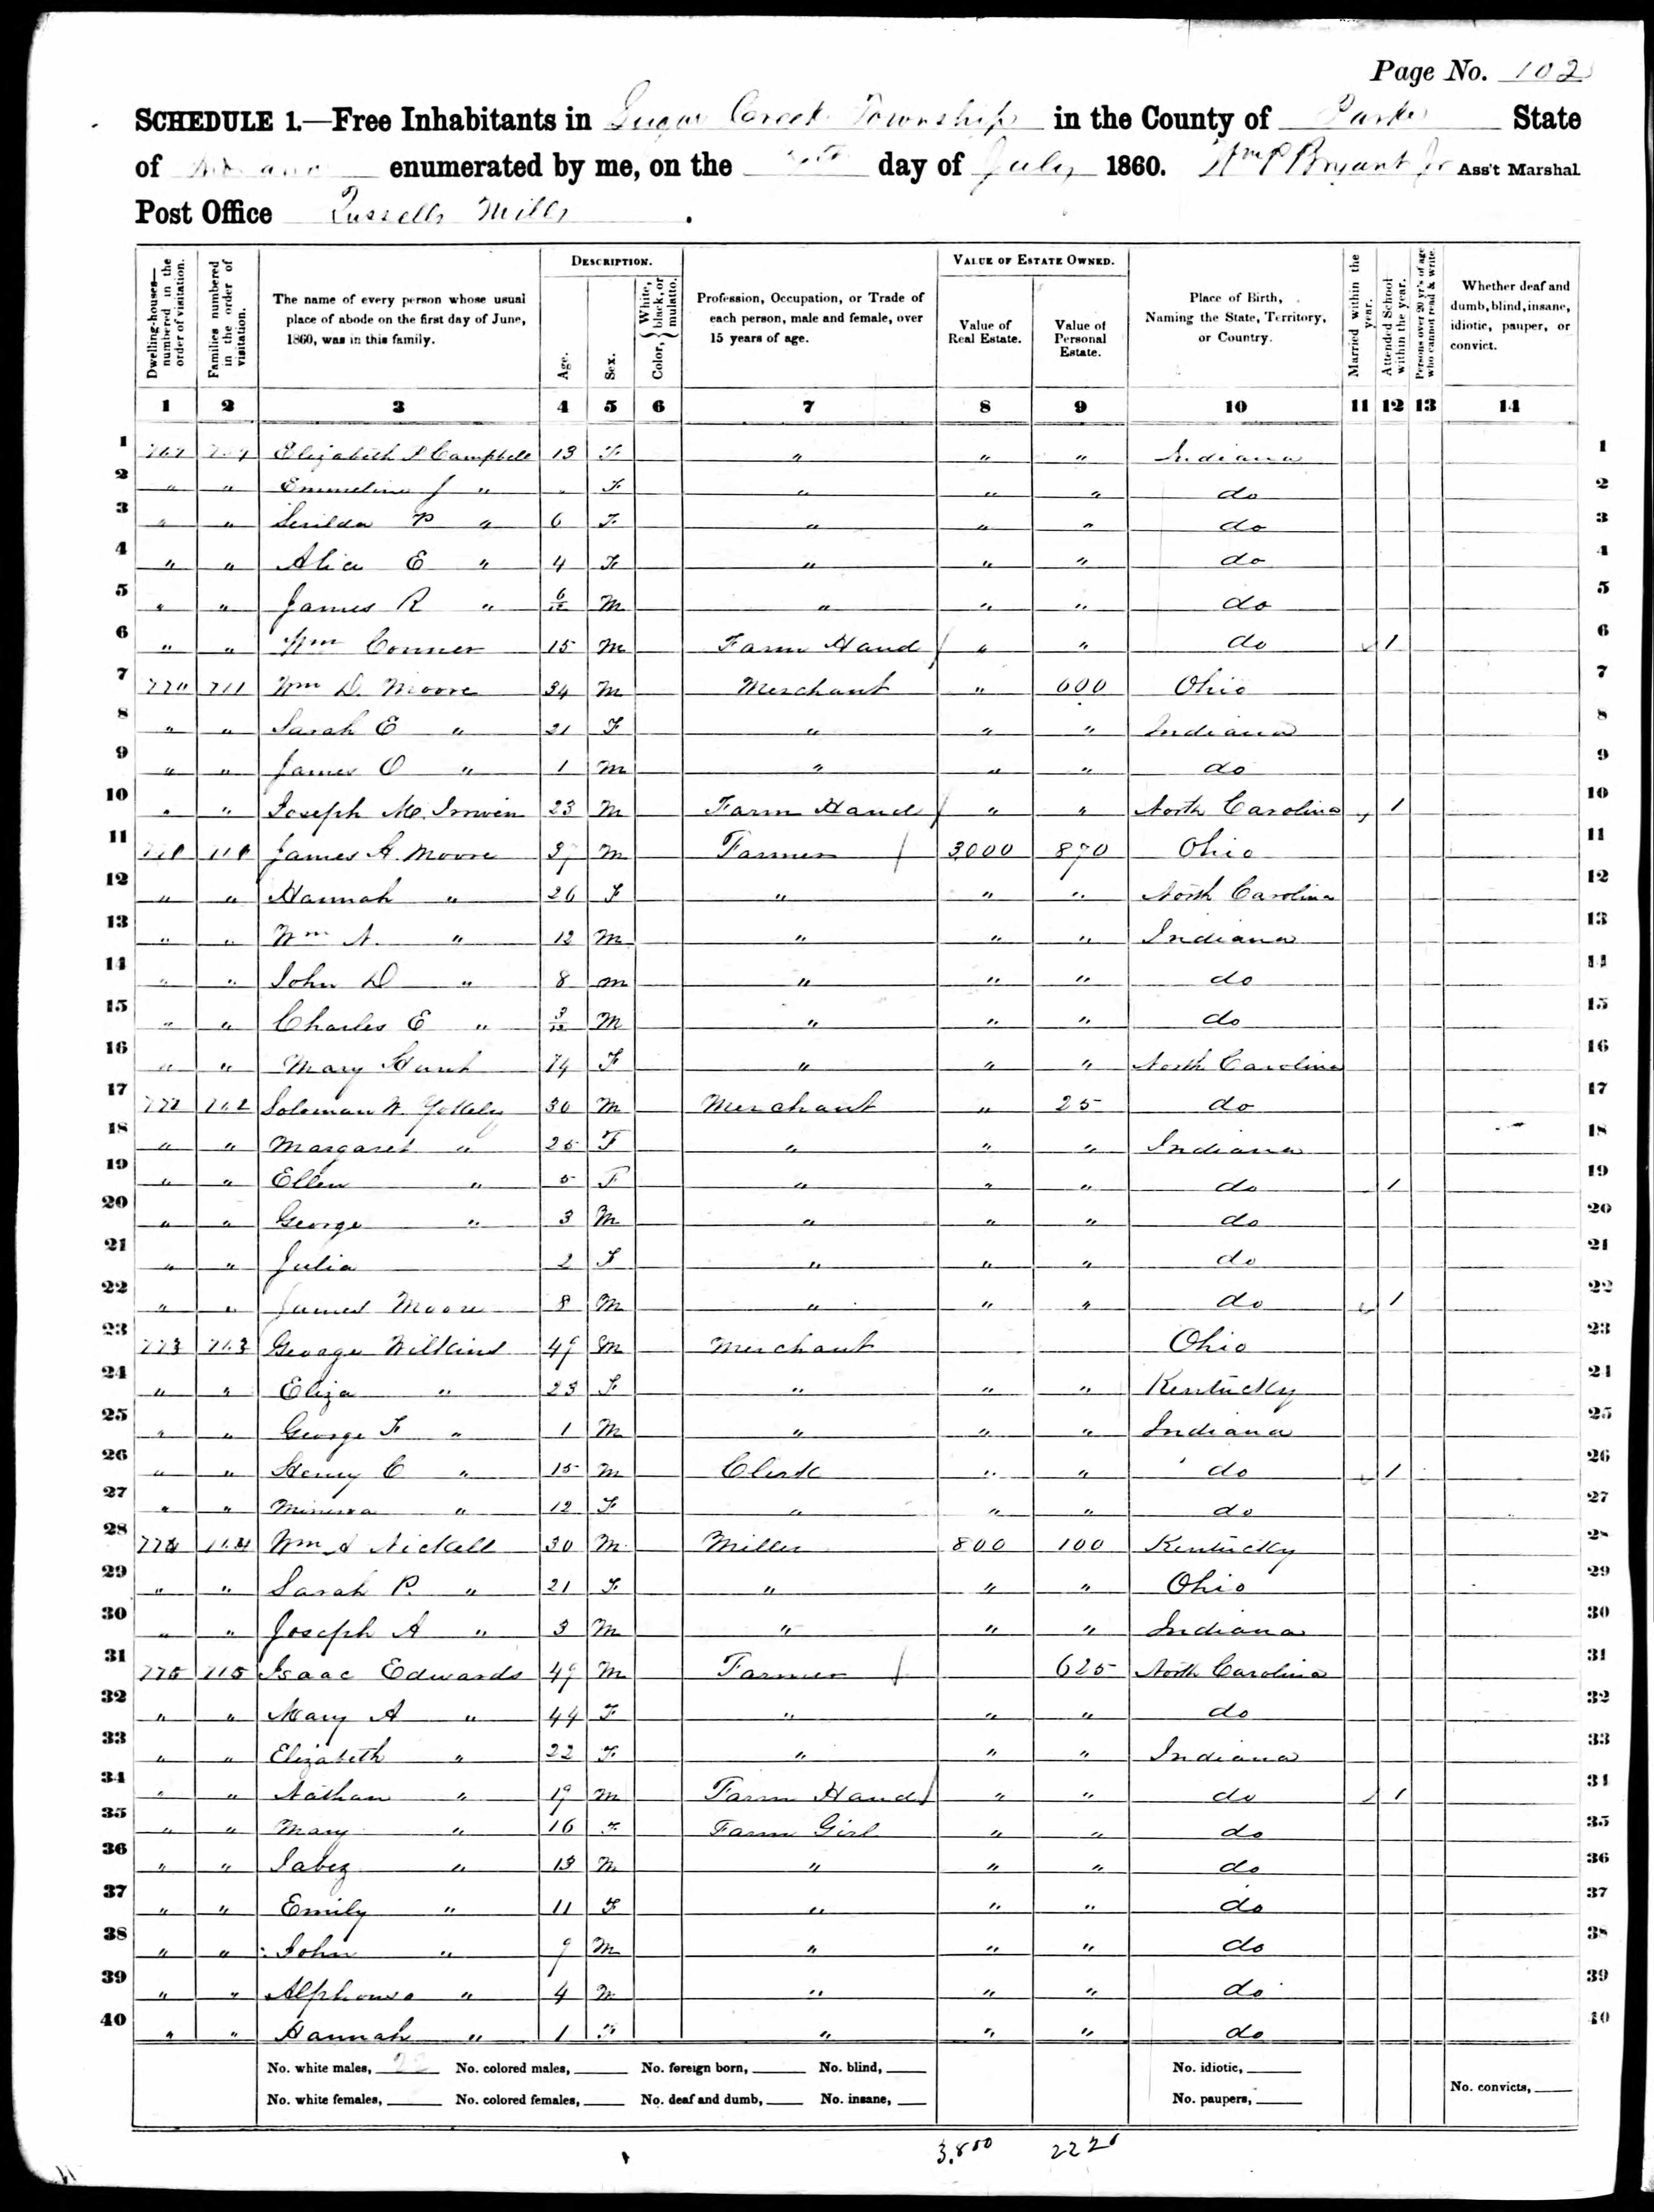 Page No. 102
SCHEDULE 1.—Free Inhabitants in Sugar Creek Township in the County of Parke State
of Indiana enumerated by me, on the day of July 1860. Wm P Bryant Jr Ass't Marshal
Post Office Russells Mills .
Dwelling-houses—numbered in the order of visitation.
Families numbered in the order of visitation.
The name of every person whose usual place of abode on the first day of June, 1860, was in this family.
DESCRIPTION.
Age.
Sex.
Color, { White, black, or mulatto. }
Profession, Occupation, or Trade of each person, male and female, over 15 years of age.
VALUE OF ESTATE OWNED.
Value of Real Estate.
Value of Personal Estate.
Place of Birth, Naming the State, Territory, or Country.
Married within the year.
Attended School within the year.
Persons over 20 yr's of age who cannot read & write.
Whether deaf and dumb, blind, insane, idiotic, pauper, or convict.
1 2 3 4 5 6 7 8 9 10 11 12 13 14
1 Elizabeth Campbell 13 F " " " Indiana 1
2 " " Emmeline J " F " " " do 2
3 " " P " 6 F " " " do 3
4 " " Alice E " 4 F " " " do 4
5 " " James R " 6/12 M " " " do 5
6 " " Wm Conner 15 M Farm Hand / " " do 1 6
7 770 711 Wm D. Moore 34 M Merchant " 600 Ohio 7
8 " " Sarah E " 21 F " " " Indiana 8
9 " " James O " 1 M " " " do 9
10 " " Joseph Mc Irwin 23 M Farm Hand / " " North Carolina 1 10
11 James A. Moore 37 M Farmer / 3000 870 Ohio 11
12 " " Hannah " 26 F " " " North Carolina 12
13 " " Wm N. " 12 M " " " Indiana 13
14 " " John D " 8 m " " " do 14
15 " " Charles E " 3/12 M " " " do 15
16 " " Mary 74 F " " " North Carolina 16
17 772 Soloman W. 30 M Merchant " 25 do 17
18 " " Margaret " 25 F " " " Indiana 18
19 " " Ellen " 5 F " " " do 1 19
20 " " George " 3 M " " " do 20
21 " " Julia 2 F " " " do 21
22 " " James Moore 8 M " " " do 1 22
23 773 713 George Wilkins 49 M Merchant Ohio 23
24 " " Eliza " 23 F " " " Kentucky 24
25 " " George F " 1 M " " " Indiana 25
26 " " Henry C " 15 M Clerk " " do 1 26
27 " " Minerva " 12 F " " " do 27
28 774 714 Wm A Nickell 30 M Miller 800 100 Kentucky 28
29 " " Sarah P. " 21 F " " " Ohio 29
30 " " Joseph A " 3 M " " " Indiana 30
31 775 715 Isaac Edwards 49 M Farmer / 625 North Carolina 31
32 " " Mary A " 44 F " " " do 32
33 " " Elizabeth " 22 F " " " Indiana 33
34 " " Nathan " 19 M Farm Hand / " " do 1 34
35 " " Mary " 16 F Farm Girl " " do 35
36 " " Jabez " 13 M " " " do 36
37 " " Emily " 11 F " " " do 37
38 " " John " 9 M " " " do 38
39 " " Alphonso " 4 M " " " do 39
40 " " Hannah " 1 F " " " do 40
No. white males, 22 No. colored males, No. foreign born, No. blind, No. idiotic,
No. white females, No. colored females, No. deaf and dumb, No. insane, No. paupers, No. convicts,
3,800 2220